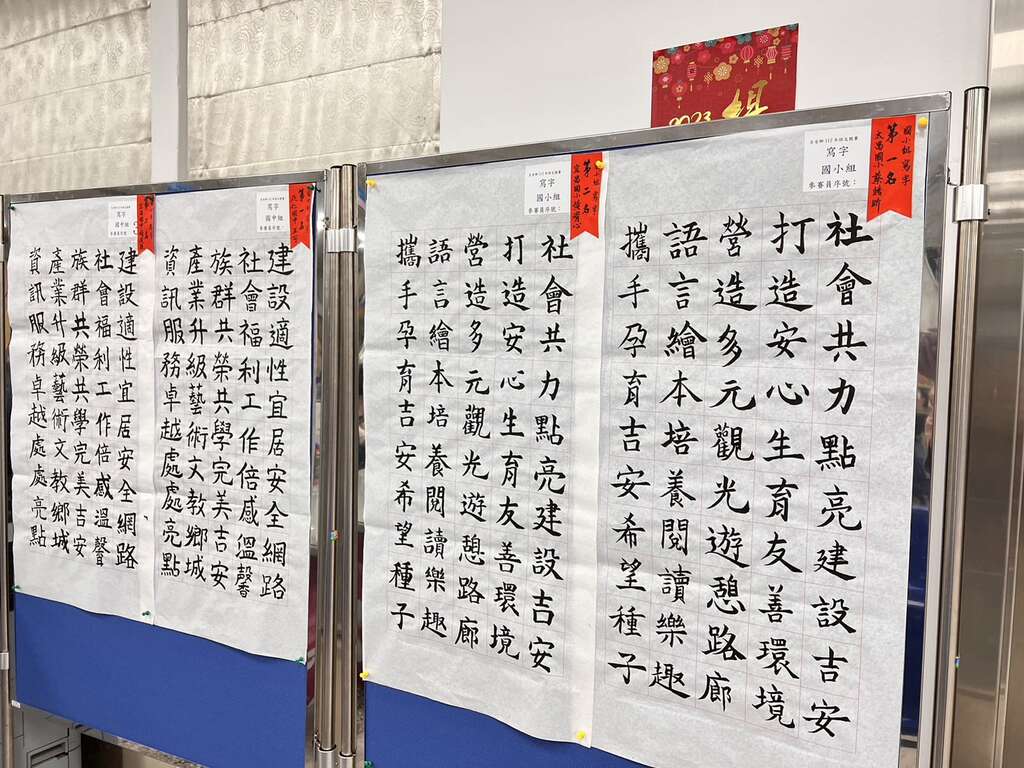 2023
國小組 寫字
第一名
太昌國小
吉安鄉112年語文競賽
寫字
國小組
參賽員序號：
社會共力點亮建設吉安
打造安心生育友善環境
營造多元觀光遊憩路廊
語言繪本培養閱讀樂趣
攜手孕育吉安希望種子
國小組 寫字
第二名
宜昌國小
吉安鄉112年語文競賽
寫字
國小組
參賽員序號：
社會共力點亮建設吉安
打造安心生育友善環境
營造多元觀光遊憩路廊
語言繪本培養閱讀樂趣
攜手孕育吉安希望種子
第一名
寫字
國中組
參賽員序號：
建設適性宜居安全網路
社會福利工作倍感溫馨
族群共榮共學完美吉安
產業升級藝術文教鄉城
資訊服務卓越處處亮點
寫字
國中組
參賽員序號：
建設適性宜居安全網路
社會福利工作倍感溫聲
族群共榮共學完美吉安
產業升級藝術文教鄉城
資訊服務卓越處處亮點